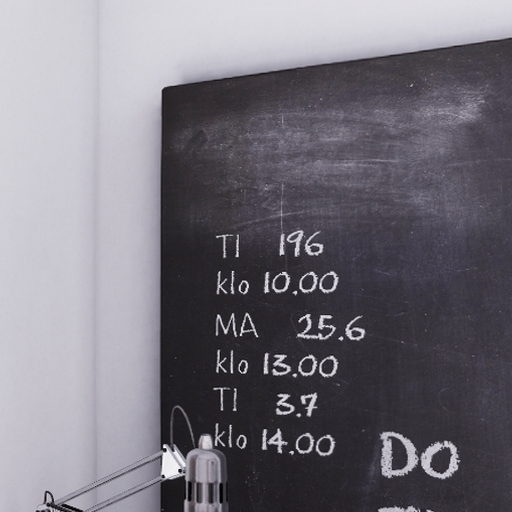 TI 196
klo 10.00
MA 25.6
klo 13.00
TI 3.7
klo 14.00
DO